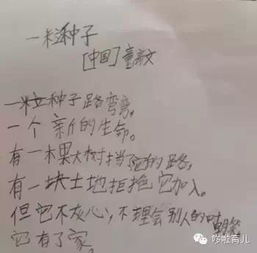 一粒种子
[中国]童
一粒种子路弯弯。
一个新的生命。
有一棵大树挡它的路,
有一块土地拒抱它加入。
但它不灰心,不理会别人的嘲笑
它有了家。
哆啦育儿